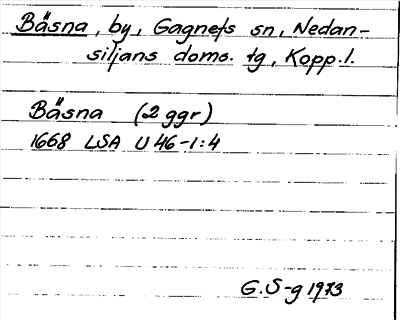 Bäsna, by, Gagnefs sn, Nedan-
siljans doms. tg, Kopp. l.
Bäsna (2 ggr)
1668 LSA U 46-1:4
G.S-g 1973